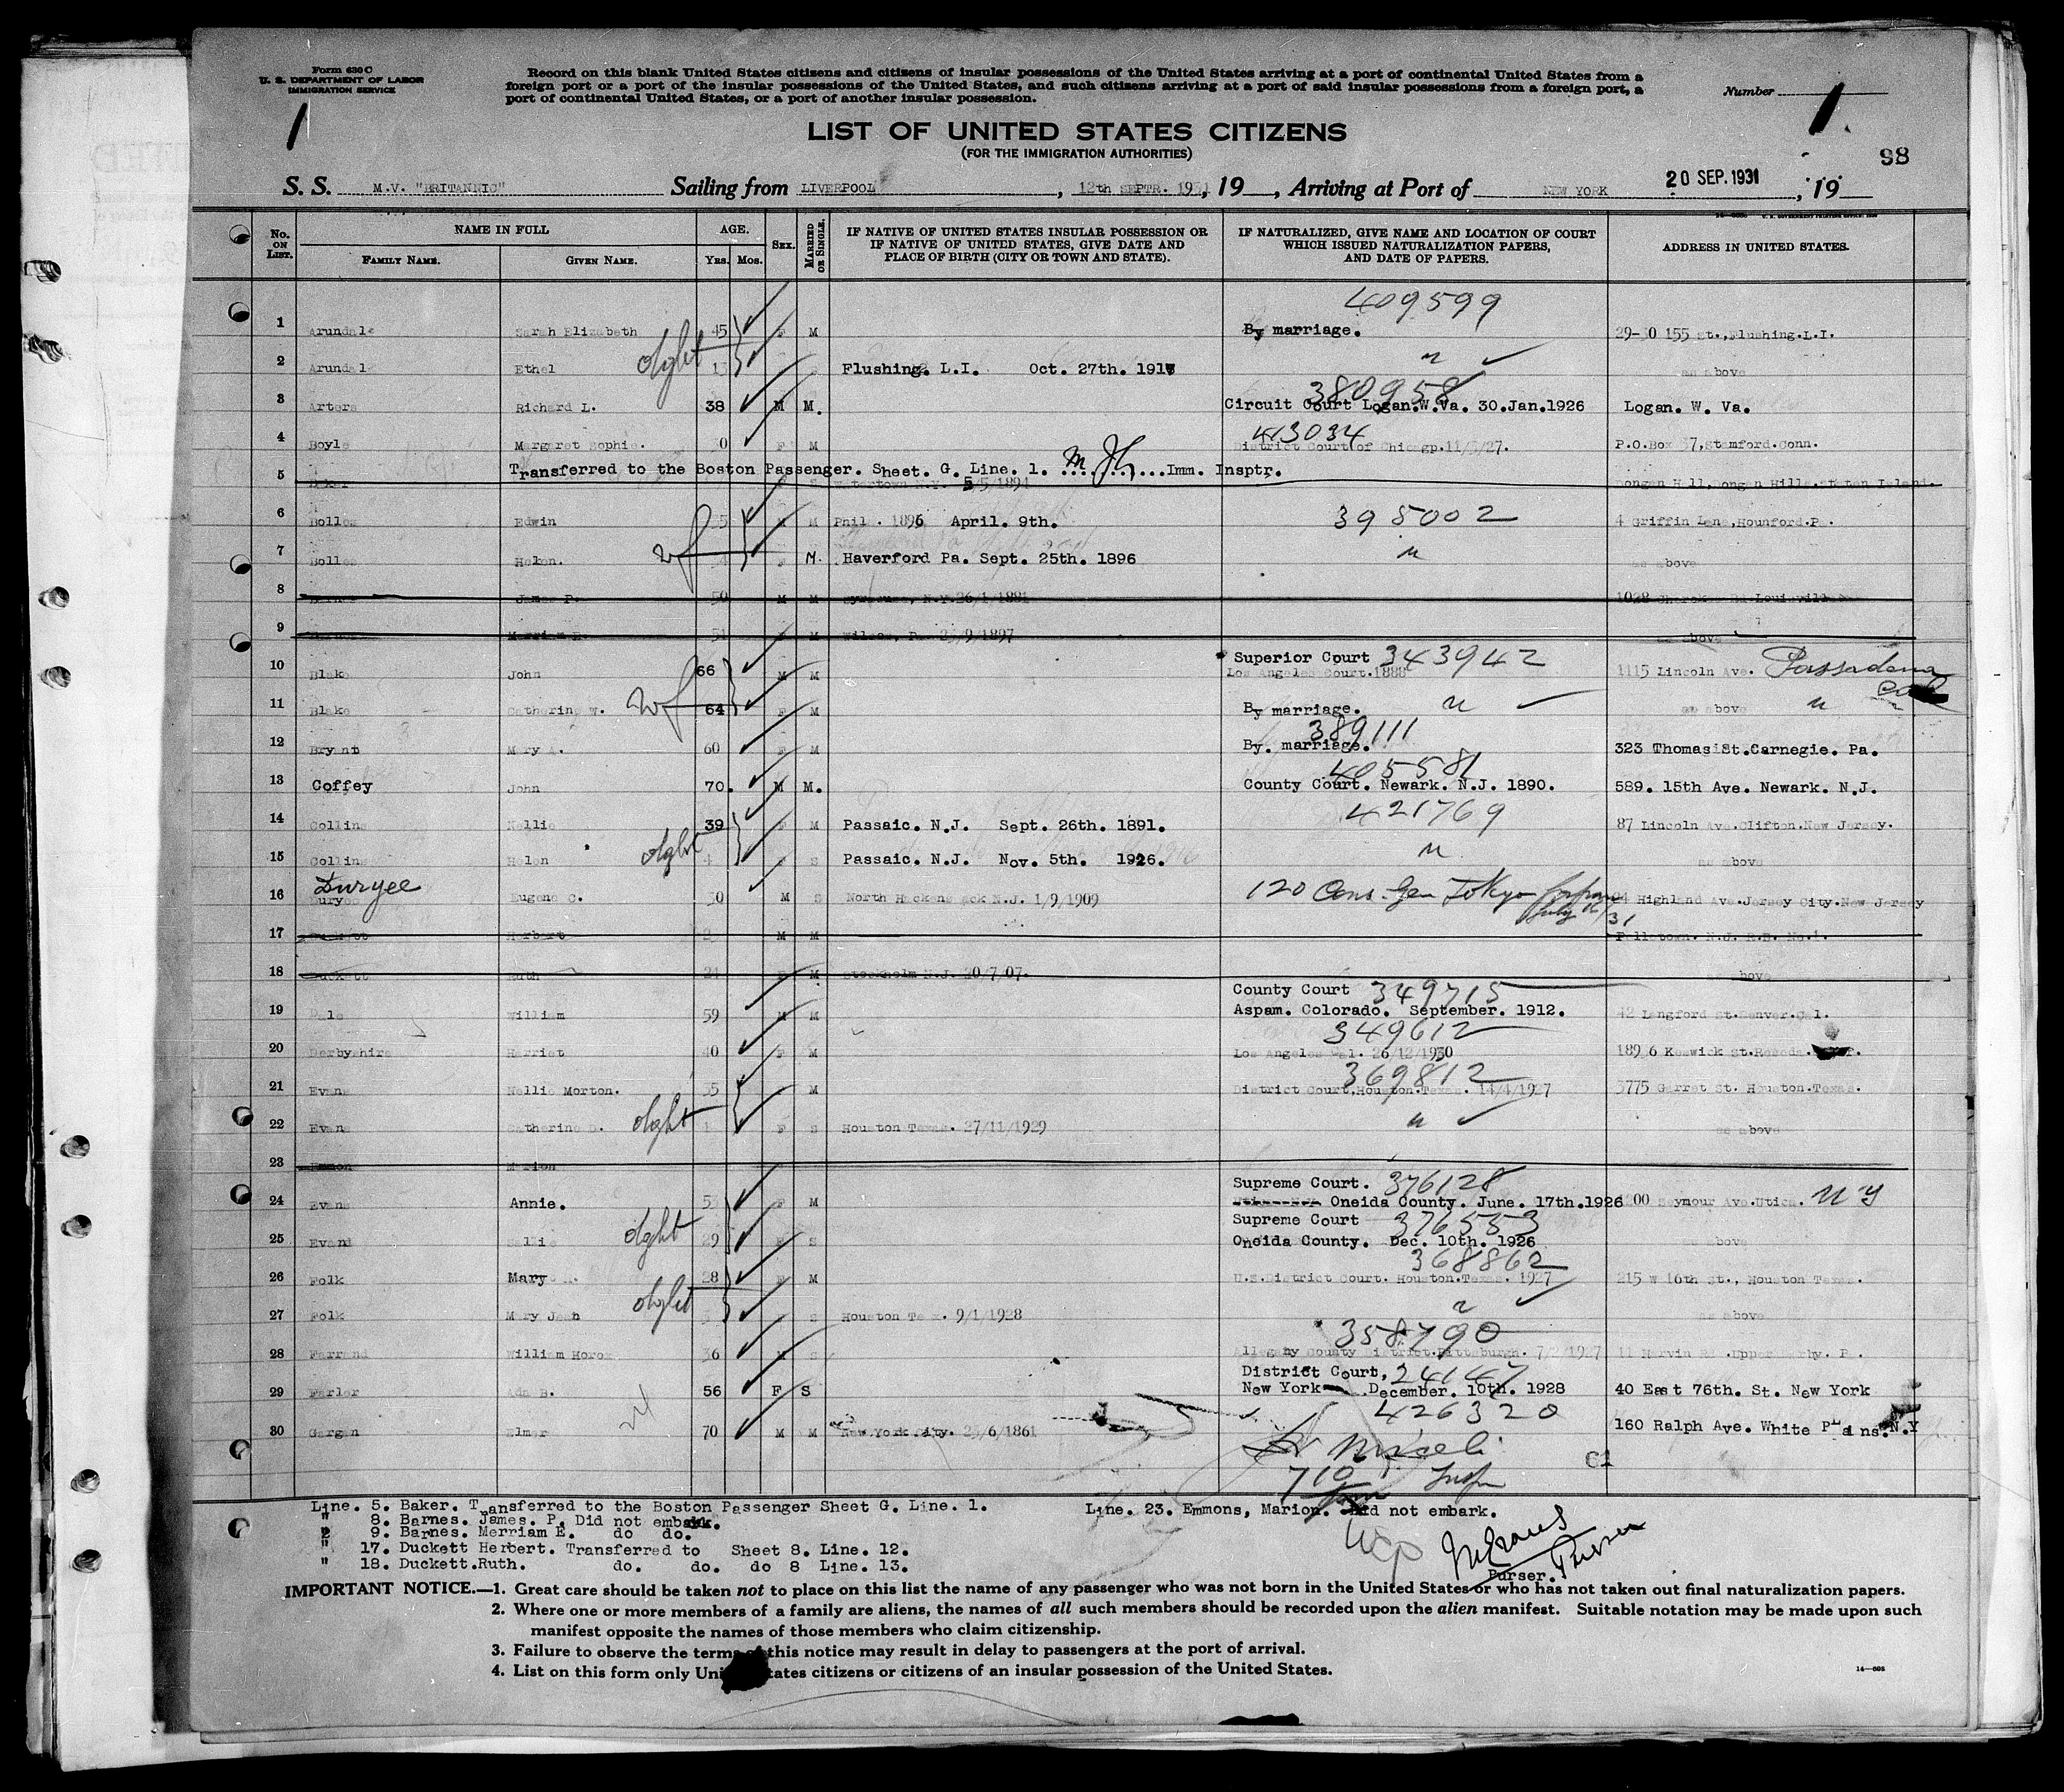 Form 630 C
U. S. DEPARTMENT OF LABOR
IMMIGRATION SERVICE
Record on this blank United States citizens and citizens of insular possessions of the United States arriving at a port of continental United States from a
foreign port or a port of the insular possessions of the United States, and such citizens arriving at a port of said insular possessions from a foreign port, a
port of continental United States, or a port of another insular possession.
Number 1
1
LIST OF UNITED STATES CITIZENS
(FOR THE IMMIGRATION AUTHORITIES)
98
S. S. M.V. "BRITANNIC" Sailing from LIVERPOOL, 12th SEPTR. 1931, 19, Arriving at Port of NEW YORK 20 SEP. 1931, 19
No. ON LIST. NAME IN FULL FAMILY NAME. GIVEN NAME. AGE. YRS. MOS. SEX. MARRIED OR SINGLE. IF NATIVE OF UNITED STATES INSULAR POSSESSION OR IF NATIVE OF UNITED STATES, GIVE DATE AND PLACE OF BIRTH (CITY OR TOWN AND STATE). IF NATURALIZED, GIVE NAME AND LOCATION OF COURT WHICH ISSUED NATURALIZATION PAPERS, AND DATE OF PAPERS. ADDRESS IN UNITED STATES.
409599
1 Arundale Sarah Elizabeth 45 F M By marriage. 29-30 155 st.,Flushing.L.I.
2 Arundale Ethel dght 13 S Flushing. L.I. Oct. 27th. 1917 " as above
380958
3 Arters Richard L. 38 M M. Circuit Court Logan.W.Va. 30.Jan.1926 Logan. W. Va.
413034
4 Boyle Margaret Sophie. 30 F M District Court of Chicago. P.O.Box 37,Stamford.Conn.
Transferred to the Boston Passenger. Sheet. G. Line. 1. Imm. Insptr.
5 Baker S Watertown N.Y. 5/5/1894 Dongan Hall,Dongan Hills.Staten Island.
6 Bolles Edwin 35 M M Phil. 1896 April. 9th. 395002 4 Griffin Lane,Hounford.Pa.
7 Bolles Helen. wf F M. Haverford Pa. Sept. 25th. 1896 " as above
8 Barnes James P. 50 M M Syracuse, N.Y.26/1/1881 1028 Cherokee Rd.Louisville
9 Barnes Merriam E. M /9/1897 as above
Superior Court 343942
10 Blake John 66 M M Los Angeles Court.1888 1115 Lincoln Ave. Passadena Cal
11 Blake Catherine W. wf 64 F M By marriage. " as above "
389111
12 Bryant Mary A. 60 F M By. marriage. 323 Thomas St.Carnegie. Pa.
405581
13 Coffey John 70. M M. County Court. Newark. N.J. 1890. 589. 15th Ave. Newark. N.J.
421769
14 Collins Nellie 39 F M Passaic. N.J. Sept. 26th. 1891. 87 Lincoln Ave.Clifton.New Jersey.
15 Collins Helen dght 4 F S Passaic. N.J. Nov. 5th. 1926. " as above
Duryee
16 Duryee Eugene C. 30 M S North Hackensack N.J. 1/9/1909 120 Cons. Gen Tokyo Japan July 16/31 Highland Ave.Jersey City.New Jersey
17 Duckett Herbert M M N.J. R.D. No.1.
18 Duckett Ruth 24 F M Stockholm N.J. 20/7/07. as above
County Court 349715
19 Dale William 59 M M Aspam. Colorado. September. 1912. 42 Langford St.Denver.Col.
349612
20 Derbyshire Harriet 40 F M Los Angeles Cal. 26/12/1930 18936 Keswick St.Reseda.
369812
21 Evans Nellie Morton. 35 M District Court,Houston.Texas. 14/4/1927 3775 Garret St. Houston.Texas.
22 Evans Catherine D. dght 1 F S Houston Texas. 27/11/1929 " as above
23 Emmon Marion
Supreme Court. 376128
24 Evans Annie. 53 F M Oneida County. June. 17th.1926 Seymour Ave.Utica. N Y
Supreme Court 376553
25 Evans Nellie dght 29 F S Oneida County. Dec. 10th. 1926 as above
368862
26 Folk Mary 28 F M U.S.District Court. Houston.Texas. 1927 215 W 16th St., Houston Texas.
27 Folk Mary Jean dght F S Houston Tex. 9/1/1928 " as above
358790
28 Farrand William Horox 36 M S Allegany County District.Pittsburgh. 11 Marvin Rd.Upper Darby. Pa.
District Court, 24147
29 Farlor Ada B. 56 F S New York December. 10th. 1928 40 East 76th. St. New York
426320
30 Gargan Elmer 70 M M New York City. 25/6/1861 160 Ralph Ave. White Plains.N.Y
61
Insp
Line. 5. Baker. Transferred to the Boston Passenger Sheet G. Line. 1. Line. 23. Emmons, Marion. Did not embark.
" 8. Barnes. James. P. Did not embark.
" 9. Barnes. Merriam E. do do.
" 17. Duckett Herbert. Transferred to Sheet 8. Line. 12.
" 18. Duckett.Ruth. do. do. do 8 Line. 13.
Purser
Purser.
IMPORTANT NOTICE.—1. Great care should be taken not to place on this list the name of any passenger who was not born in the United States or who has not taken out final naturalization papers.
2. Where one or more members of a family are aliens, the names of all such members should be recorded upon the alien manifest. Suitable notation may be made upon such
manifest opposite the names of those members who claim citizenship.
3. Failure to observe the terms of this notice may result in delay to passengers at the port of arrival.
4. List on this form only United States citizens or citizens of an insular possession of the United States.